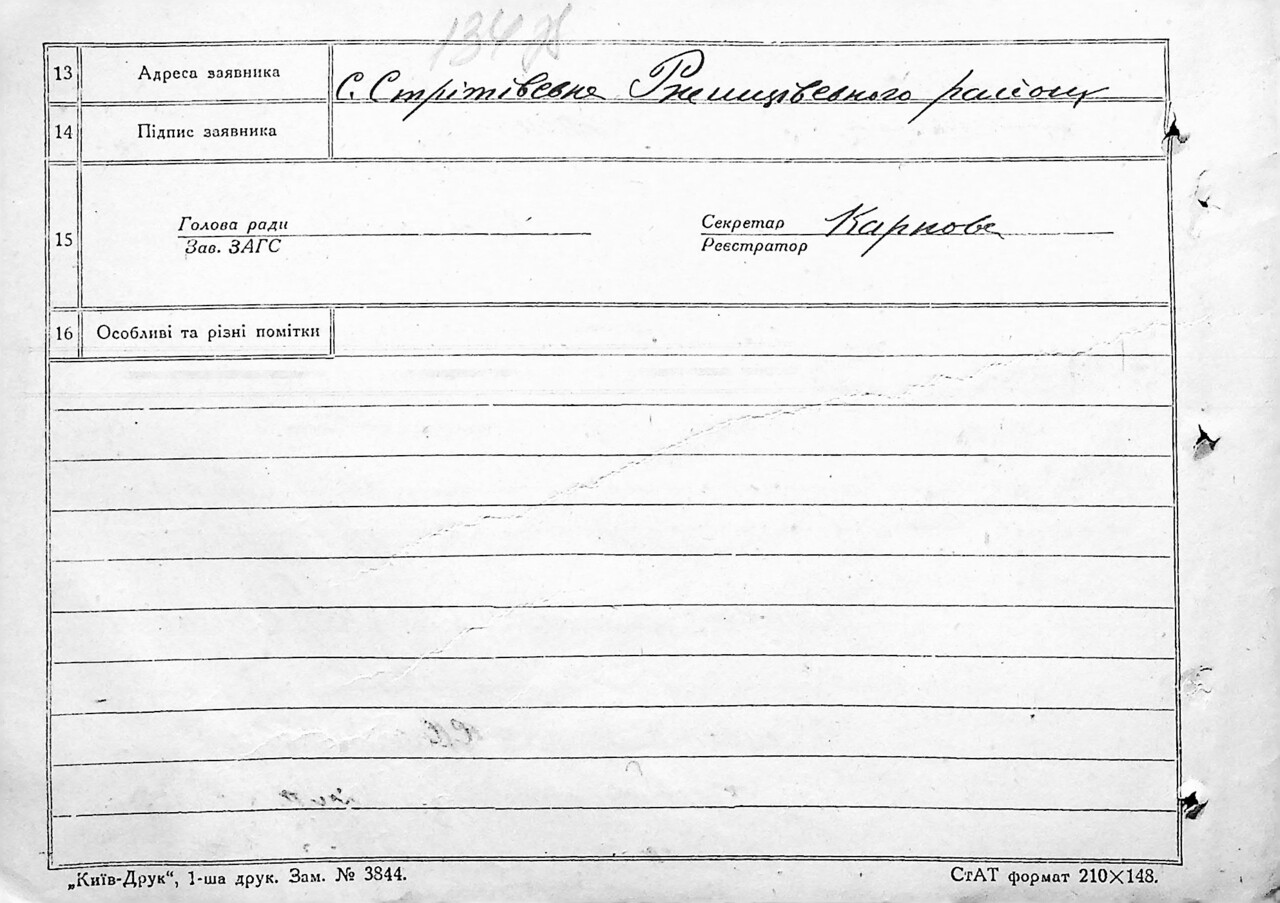 134
13 Адреса заявника с. Стрітівська Ржищівського району
14 Підпис заявника
15 Голова ради
Зав. ЗАГС
Секретар Карпова
Реєстратор
16 Особливі та різні помітки
„Київ-Друк“, 1-ша друк. Зам. № 3844.
СтАТ формат 210×148.